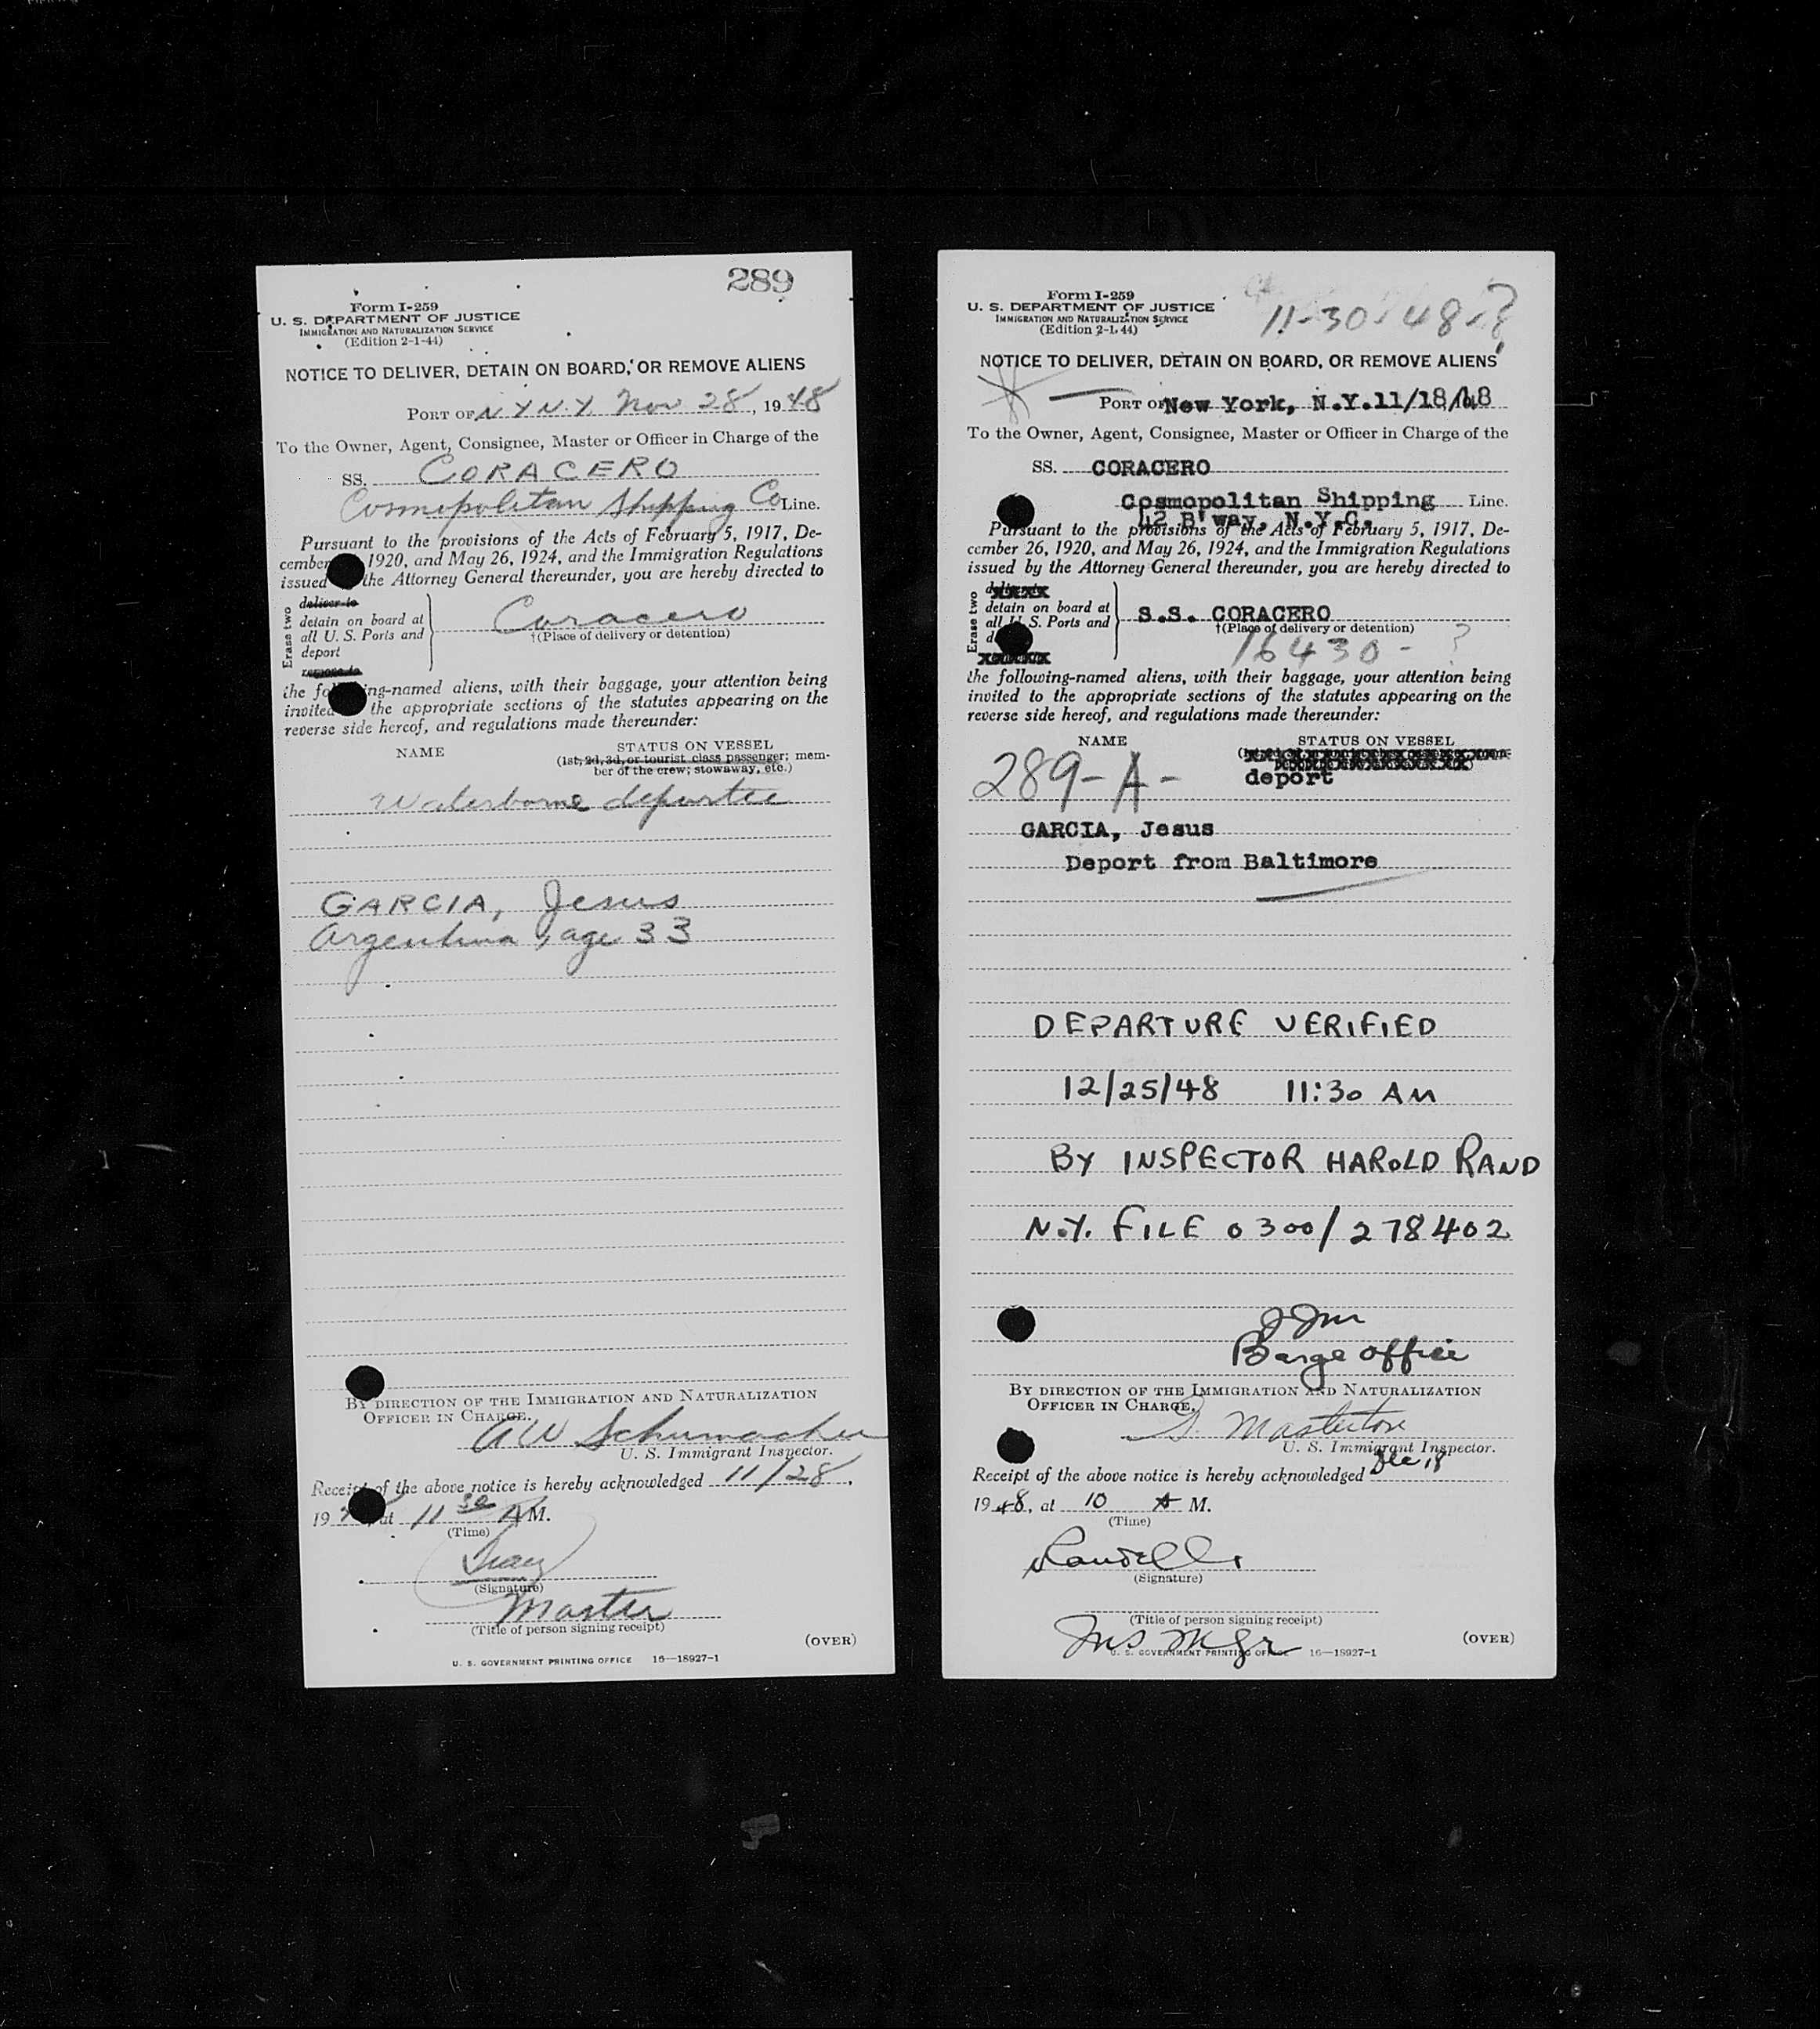 289
Form I-259
U. S. DEPARTMENT OF JUSTICE
IMMIGRATION AND NATURALIZATION SERVICE
(Edition 2-1-44)
NOTICE TO DELIVER, DETAIN ON BOARD, OR REMOVE ALIENS
PORT OF N Y N.Y. Nov 28, 1948
To the Owner, Agent, Consignee, Master or Officer in Charge of the
SS. CORACERO
Cosmopolitan Shipping Co Line.
Pursuant to the provisions of the Acts of February 5, 1917, De-
cember 1920, and May 26, 1924, and the Immigration Regulations
issued the Attorney General thereunder, you are hereby directed to
Erase two
deliver to
detain on board at
all U. S. Ports and
deport
remove to
Coracero
†(Place of delivery or detention)
the following-named aliens, with their baggage, your attention being
invited the appropriate sections of the statutes appearing on the
reverse side hereof, and regulations made thereunder:
NAME
STATUS ON VESSEL
(1st, 2d, 3d, or tourist class passenger; mem-
ber of the crew; stowaway, etc.)
Waterborne deportee
GARCIA, Jesus
Argentina, age 33
BY DIRECTION OF THE IMMIGRATION AND NATURALIZATION
OFFICER IN CHARGE.
A W Schumacher
U. S. Immigrant Inspector.
Receipt of the above notice is hereby acknowledged 11/28,
19 at 11 30 A M.
(Time)
(Signature)
Master
(Title of person signing receipt)
(OVER)
U. S. GOVERNMENT PRINTING OFFICE 16—18927-1
Form I-259
U. S. DEPARTMENT OF JUSTICE
IMMIGRATION AND NATURALIZATION SERVICE
(Edition 2-1-44)
11-30-48-?
NOTICE TO DELIVER, DETAIN ON BOARD, OR REMOVE ALIENS
PORT OF New York, N.Y. 11/18/48
To the Owner, Agent, Consignee, Master or Officer in Charge of the
SS. CORACERO
Cosmopolitan Shipping Line.
42 B'way, N.Y.C.
Pursuant to the provisions of the Acts of February 5, 1917, De-
cember 26, 1920, and May 26, 1924, and the Immigration Regulations
issued by the Attorney General thereunder, you are hereby directed to
Erase two
detain on board at
all U. S. Ports and
S.S. CORACERO
†(Place of delivery or detention)
16430- ?
the following-named aliens, with their baggage, your attention being
invited to the appropriate sections of the statutes appearing on the
reverse side hereof, and regulations made thereunder:
NAME
STATUS ON VESSEL
289-A-
deport
GARCIA, Jesus
Deport from Baltimore
DEPARTURE VERIFIED
12/25/48 11:30 AM
BY INSPECTOR HAROLD RAND
N.Y. FILE 0300/278402
JJM
Barge office
BY DIRECTION OF THE IMMIGRATION AND NATURALIZATION
OFFICER IN CHARGE.
S. Masterton
U. S. Immigrant Inspector.
Receipt of the above notice is hereby acknowledged Dec 18
1948, at 10 A M.
(Time)
(Signature)
(Title of person signing receipt)
Ins Mgr
U. S. GOVERNMENT PRINTING OFFICE 16—18927-1
(OVER)